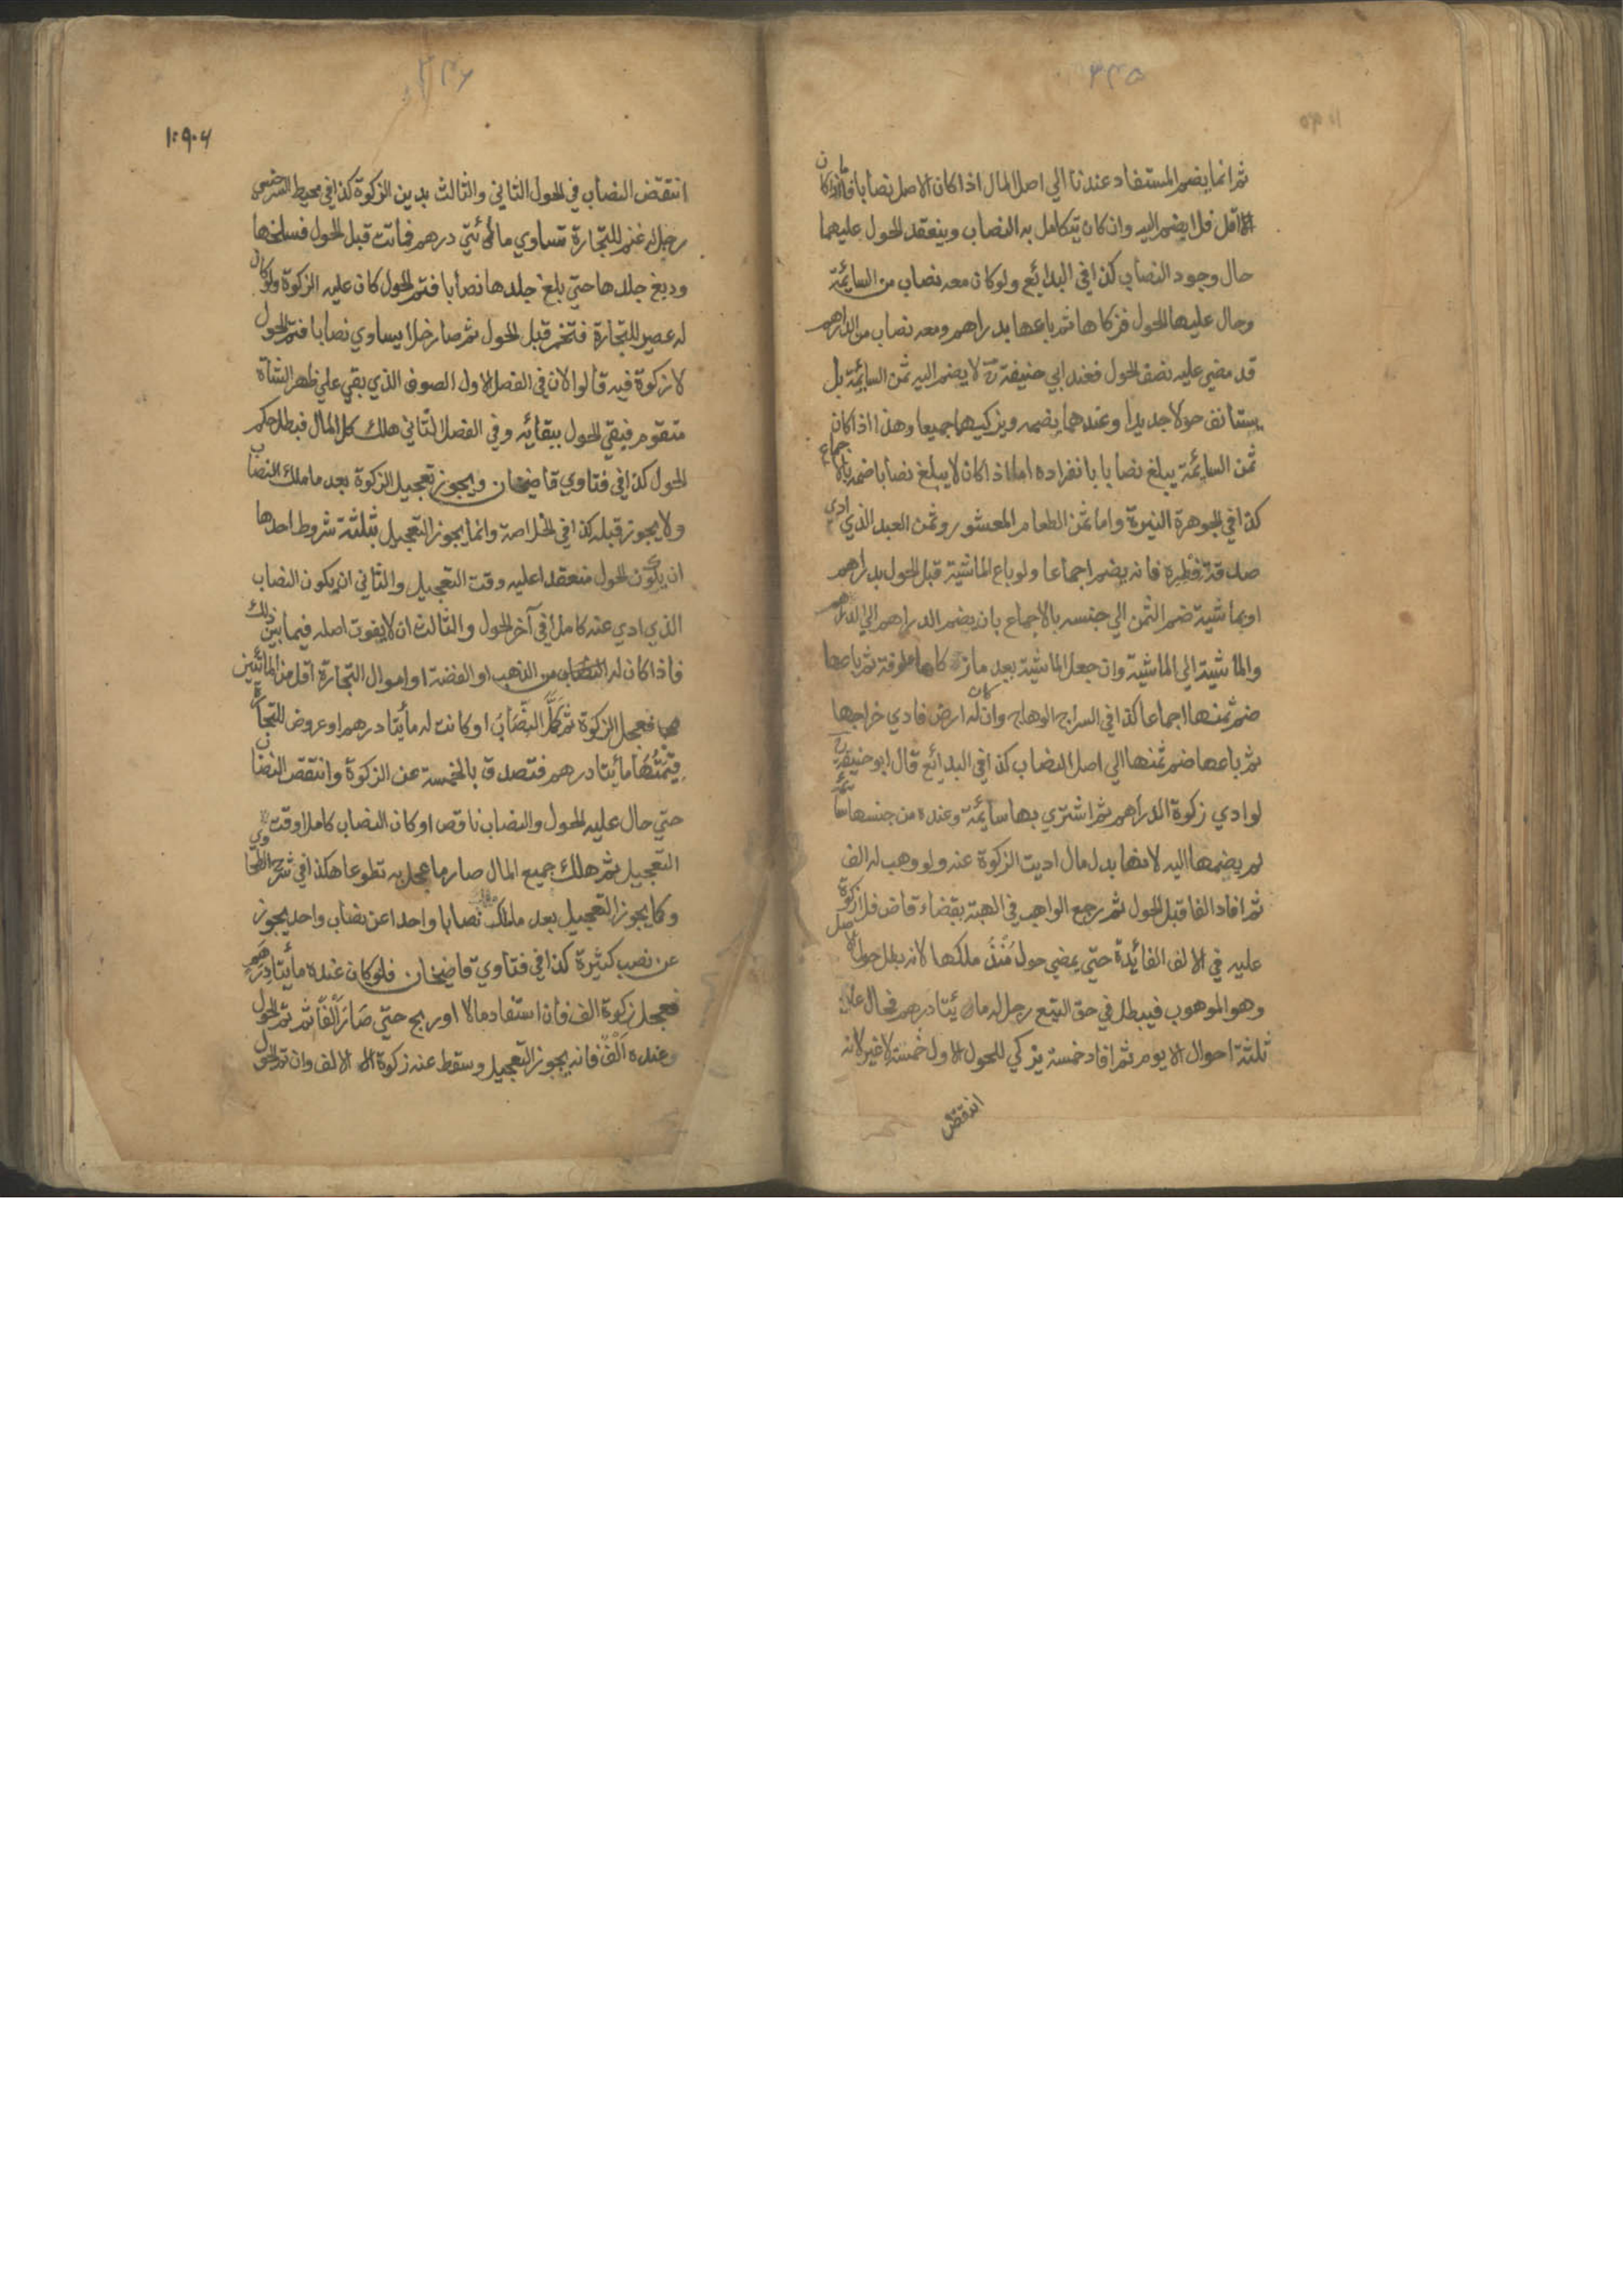 ٣٤٥
ثم انما يضم المستفاد عندنا الي اصل المال اذا كان الاصل نصابا فاما اذا كان
اقل فلا يضم اليه وان كان يتكامل به النصاب وينعقد الحول عليهما
حال وجود النصاب كذا في البدائع ولو كان معه نصاب من السائمة
وحال عليها الحول فزكاها ثم باعها بدراهم ومعه نصاب من الدراهم
قد مضي عليه نصف الحول فعند ابي حنيفة رح لا يضم اليه ثمن السائمة بل
يستأنف حولا جديدا وعندهما يضمه ويزكيهما جميعا وهذا اذا كان
ثمن السائمة يبلغ نصابا بانفراده اما اذا كان لا يبلغ نصابا ضمه بالاجماع
كذا في الجوهرة النيرة واما ثمن الطعام المعشور وثمن العبد الذي ادي
صدقة فطره فانه يضم اجماعا ولو باع الماشية قبل الحول بدراهم
او بماشية ضم الثمن الي جنسه بالاجماع بان يضم الدراهم الي الدراهم
والماشية الي الماشية وان جعل الماشية بعد ما زكاها علوفة ثم باعها
ضم ثمنها اجماعا كذا في السراج الوهاج وان كان له ارض فادي خراجها
ثم باعها ضم ثمنها الي اصل النصاب كذا في البدائع قال ابو حنيفة رح
لو ادي زكوة الدراهم ثم اشتري بها سائمة وعنده من جنسها سائمة
لم يضمها اليه لانها بدل مال اديت الزكوة عنه ولو وهب له الف
ثم افاد الفا قبل الحول ثم رجع الواهب في الهبة بقضاء قاض فلا زكوة
عليه في الالف الفائدة حتي يمضي حول منذ ملكها لانه بطل حول الاصل
وهو الموهوب فيبطل في حق التبع رجل له مائيتا درهم فحال عليه
ثلثة احوال الا يوم ثم افاد خمسة يزكي للحول الاول خمسة لا غير لانه
انتقض
٣٤٦
١٠٩٠٦
انتقض النصاب في الحول الثاني والثالث بدين الزكوة كذا في محيط السرخسي
رجل له غنم للتجارة تساوي مائتي درهم فماتت قبل الحول فسلخها
ودبغ جلدها حتي بلغ جلدها نصابا فتم الحول كان عليه الزكوة ولو كان
له عصير للتجارة فتخمر قبل الحول ثم صار خلا يساوي نصابا فتم الحول
لا زكوة فيه قالوا لان في الفصل الاول الصوف الذي بقي علي ظهر الشاة
متقوم فيبقي الحول ببقائه وفي الفصل الثاني هلك كل المال فبطل حكم
الحول كذا في فتاوي قاضيخان ويجوز تعجيل الزكوة بعد ما ملك النصاب
ولا يجوز قبله كذا في الخلاصة وانما يجوز التعجيل بثلثة شروط احدها
ان يكون الحول منعقدا عليه وقت التعجيل والثاني ان يكون النصاب
الذي ادي عنه كاملا في آخر الحول والثالث ان لا يفوت اصله فيما بين ذلك
فاذا كان له النصاب من الذهب او الفضة او اموال التجارة اقل من المائتين
فعجل الزكوة ثم كمل النصاب او كانت له مأيتا درهم او عروض للتجارة
قيمتها مأيتا درهم فتصدق بالخمسة عن الزكوة وانتقص النصاب
حتي حال عليه الحول والنصاب ناقص او كان النصاب كاملا وقت
التعجيل ثم هلك جميع المال صار ما عجل به تطوعا هكذا في شرح الطحاوي
وكما يجوز التعجيل بعد ملك نصابا واحدا عن نصاب واحد يجوز
عن نصب كثيرة كذا في فتاوي قاضيخان فلو كان عنده مأيتا درهم
فعجل زكوة الف فان استفاد مالا او ربح حتي صار الفا ثم تم الحول
وعنده الف فانه يجوز التعجيل وسقط عنه زكوة الالف وان تم الحول